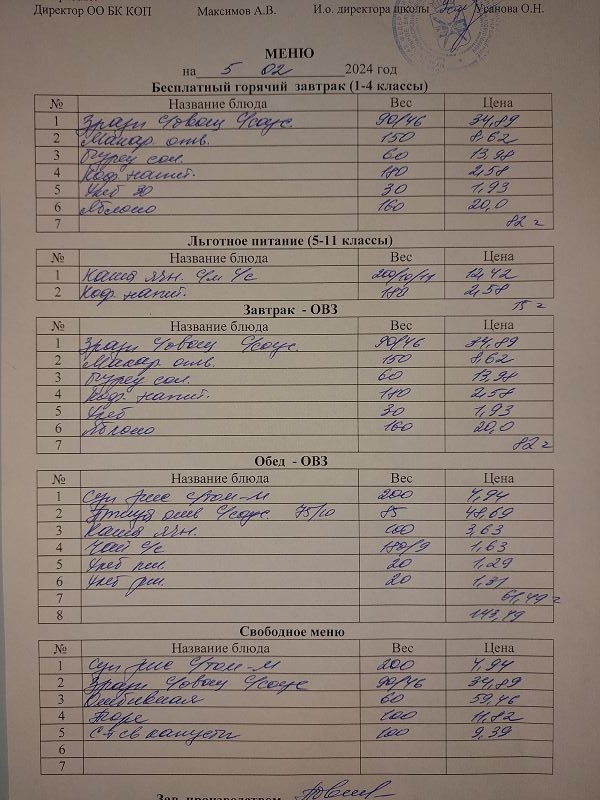 Директор ОО БК КОП Максимов А.В. И.о. директора школы Усанова О.Н.
МЕНЮ
на 5 02 2024 год
Бесплатный горячий завтрак (1-4 классы)
№ Название блюда Вес Цена
1 Зразы с/овощ с/соус. 90/46 34,89
2 Макар. отв. 150 8,62
3 Огурец сол. 60 13,98
4 Коф. напит. 180 2,58
5 Хлеб 30 1,93
6 Яблоко 160 20,0
7 82 г
Льготное питание (5-11 классы)
№ Название блюда Вес Цена
1 Каша ячн. с/м с/с 12,42
2 Коф. напит. 180 2,58
15 г
Завтрак - ОВЗ
№ Название блюда Вес Цена
1 Зразы с/овощ с/соус. 90/46 34,89
2 Макар. отв. 150 8,62
3 Огурец сол. 60 13,98
4 Коф. напит. 180 2,58
5 Хлеб 30 1,93
6 Яблоко 160 20,0
7 82 г
Обед - ОВЗ
№ Название блюда Вес Цена
1 Суп рис с/том-м 200 4,94
2 Птица отв с/соус. 75/10 85 48,69
3 Каша ячн. 100 3,63
4 Чай с/с 180/9 1,63
5 Хлеб пш. 20 1,29
6 Хлеб рж. 20 1,31
7 61,49 г
8 143,49
Свободное меню
№ Название блюда Вес Цена
1 Суп рис с/том-м 200 4,94
2 Зразы с/овощ с/соус 90/46 34,89
3 Отбивная 60 59,46
4 Пюре 100 11,82
5 С-т св капусты 100 9,39
6
7
Зав. производством